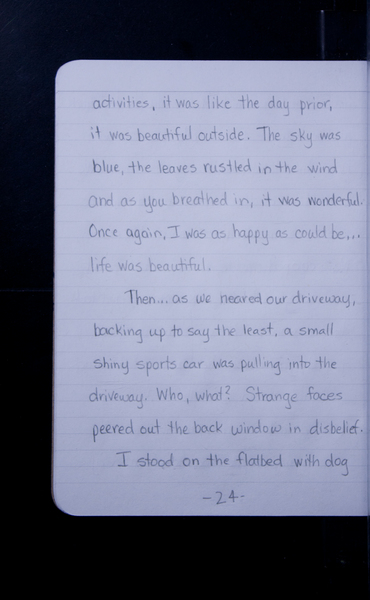 activities, it was like the day prior,
it was beautiful outside. The sky was
blue, the leaves rustled in the wind
and as you breathed in, it was wonderful.
Once again, I was as happy as could be...
life was beautiful.
Then... as we neared our driveway,
backing up to say the least, a small
shiny sports car was pulling into the
driveway. Who, what? Strange faces
peered out the back window in disbelief.
I stood on the flatbed with dog
-24-